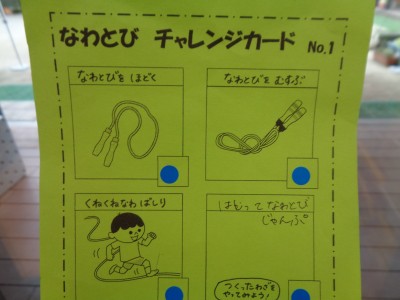 なわとび チャレンジカード No.1
なわとびを ほどく
なわとびを むすぶ
くねくねなわ ばしり
はしって なわとび
じゃんぷ
つくったわざを
やってみよう!